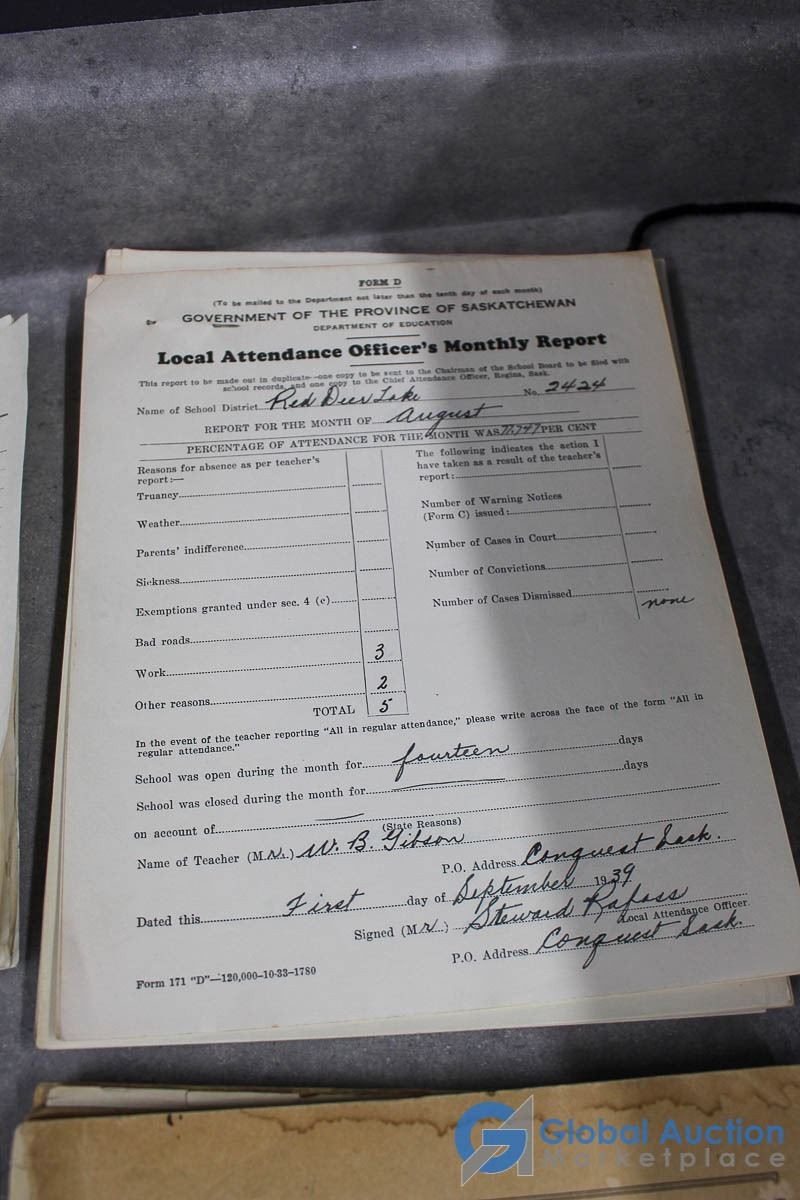 FORM D
(To be mailed to the Department not later than the tenth day of each month)
GOVERNMENT OF THE PROVINCE OF SASKATCHEWAN
DEPARTMENT OF EDUCATION
Local Attendance Officer's Monthly Report
This report to be made out in duplicate—one copy to be sent to the Chairman of the School Board to be filed with
school records, and one copy to the Chief Attendance Officer, Regina, Sask.
Name of School District Red Deer Lake No. 2424
REPORT FOR THE MONTH OF August
PERCENTAGE OF ATTENDANCE FOR THE MONTH WAS PER CENT
Reasons for absence as per teacher's
report:—
Truancy
Weather
Parents' indifference
Sickness
Exemptions granted under sec. 4 (e)
Bad roads
Work 3
Other reasons 2
TOTAL 5
The following indicates the action I
have taken as a result of the teacher's
report:
Number of Warning Notices
(Form C) issued:
Number of Cases in Court
Number of Convictions
Number of Cases Dismissed
none
In the event of the teacher reporting "All in regular attendance," please write across the face of the form "All in
regular attendance."
School was open during the month for fourteen days
School was closed during the month for days
on account of
(State Reasons)
Name of Teacher (Mr.) W. B. Gibson
P.O. Address Conquest Sask.
Dated this First day of September 1939
Signed (Mr.) Steward
Local Attendance Officer.
P.O. Address Conquest Sask.
Form 171 "D"—120,000-10-33-1780
Global Auction
Marketplace